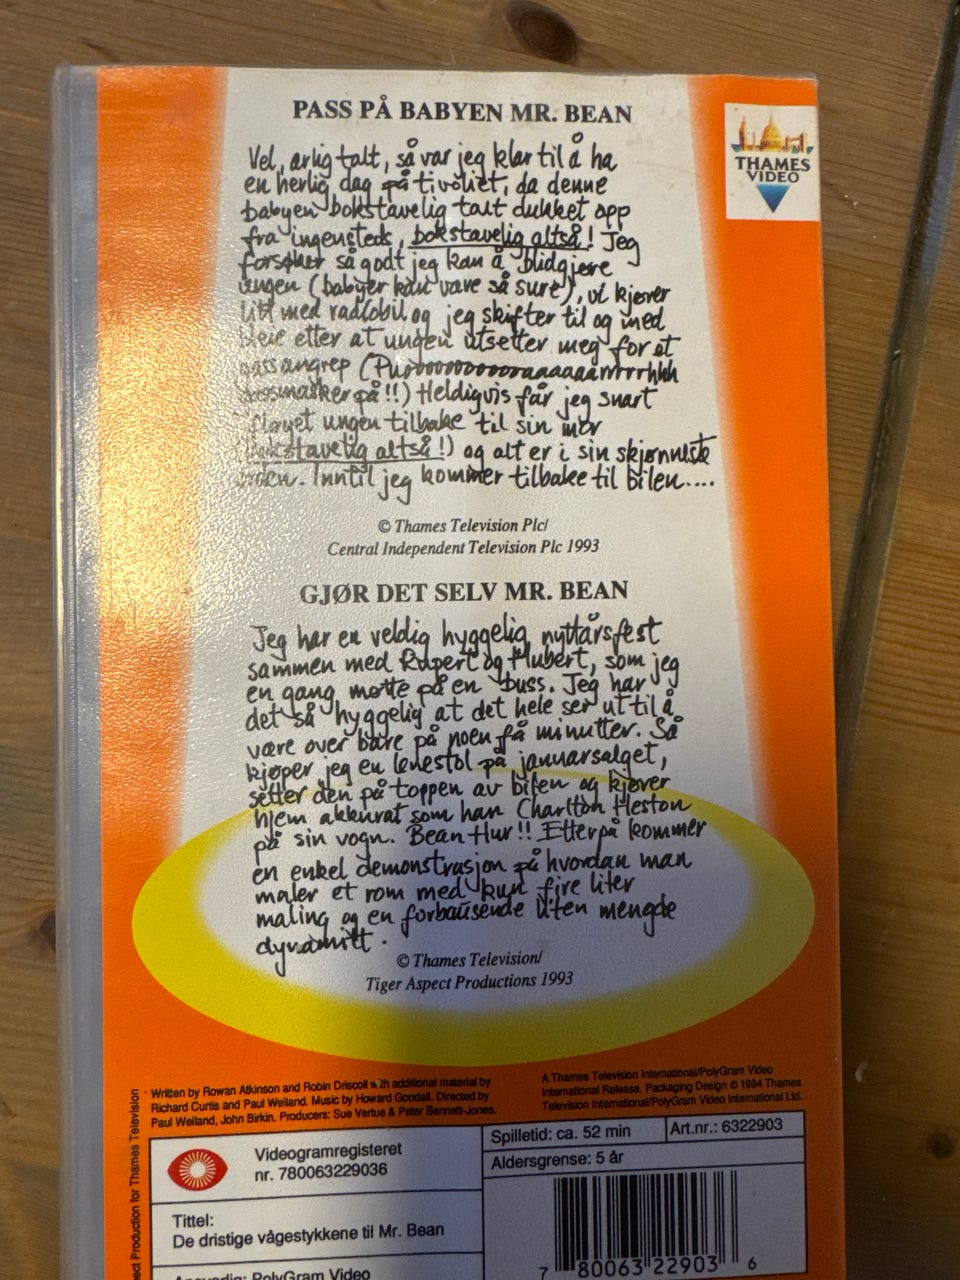 PASS PÅ BABYEN MR. BEAN
THAMES
VIDEO
Vel, ærlig talt, så var jeg klar til å ha
en herlig dag på tivoliet, da denne
babyen bokstavelig talt dukket opp
fra ingensteds, bokstavelig altså! Jeg
forsøker så godt jeg kan å blidgjøre
ungen (babyer kan være så sure), vi kjører
litt med radiobil og jeg skifter til og med
bleie etter at ungen utsetter meg for et
gassangrep (Puooooooooooraaaaaarrrrhhh
på!!) Heldigvis får jeg snart
fløyet ungen tilbake til sin mor
(bokstavelig altså!) og alt er i sin skjønneste
orden. Inntil jeg kommer tilbake til bilen....
© Thames Television Plc/
Central Independent Television Plc 1993
GJØR DET SELV MR. BEAN
Jeg har en veldig hyggelig nyttårsfest
sammen med Rupert og Hubert, som jeg
en gang møtte på en buss. Jeg har
det så hyggelig at det hele ser ut til å
være over bare på noen få minutter. Så
kjøper jeg en lenestol på januarsalget,
setter den på toppen av bilen og kjører
hjem akkurat som han Charlton Heston
på sin vogn. Bean Hur!! Etterpå kommer
en enkel demonstrasjon på hvordan man
maler et rom med kun fire liter
maling og en forbausende liten mengde
dynamitt.
© Thames Television/
Tiger Aspect Productions 1993
Written by Rowan Atkinson and Robin Driscoll with additional material by
Richard Curtis and Paul Weiland. Music by Howard Goodall. Directed by
Paul Weiland, John Birkin. Producers: Sue Vertue & Peter Bennett-Jones.
A Thames Television International/PolyGram Video
International Release. Packaging Design © 1994 Thames
Television International/PolyGram Video International Ltd.
ect Production for Thames Television
Videogramregisteret
nr. 780063229036
Spilletid: ca. 52 min
Art.nr.: 6322903
Aldersgrense: 5 år
Tittel:
De dristige vågestykkene til Mr. Bean
Ansvarlig: PolyGram Video
7 80063 22903 6